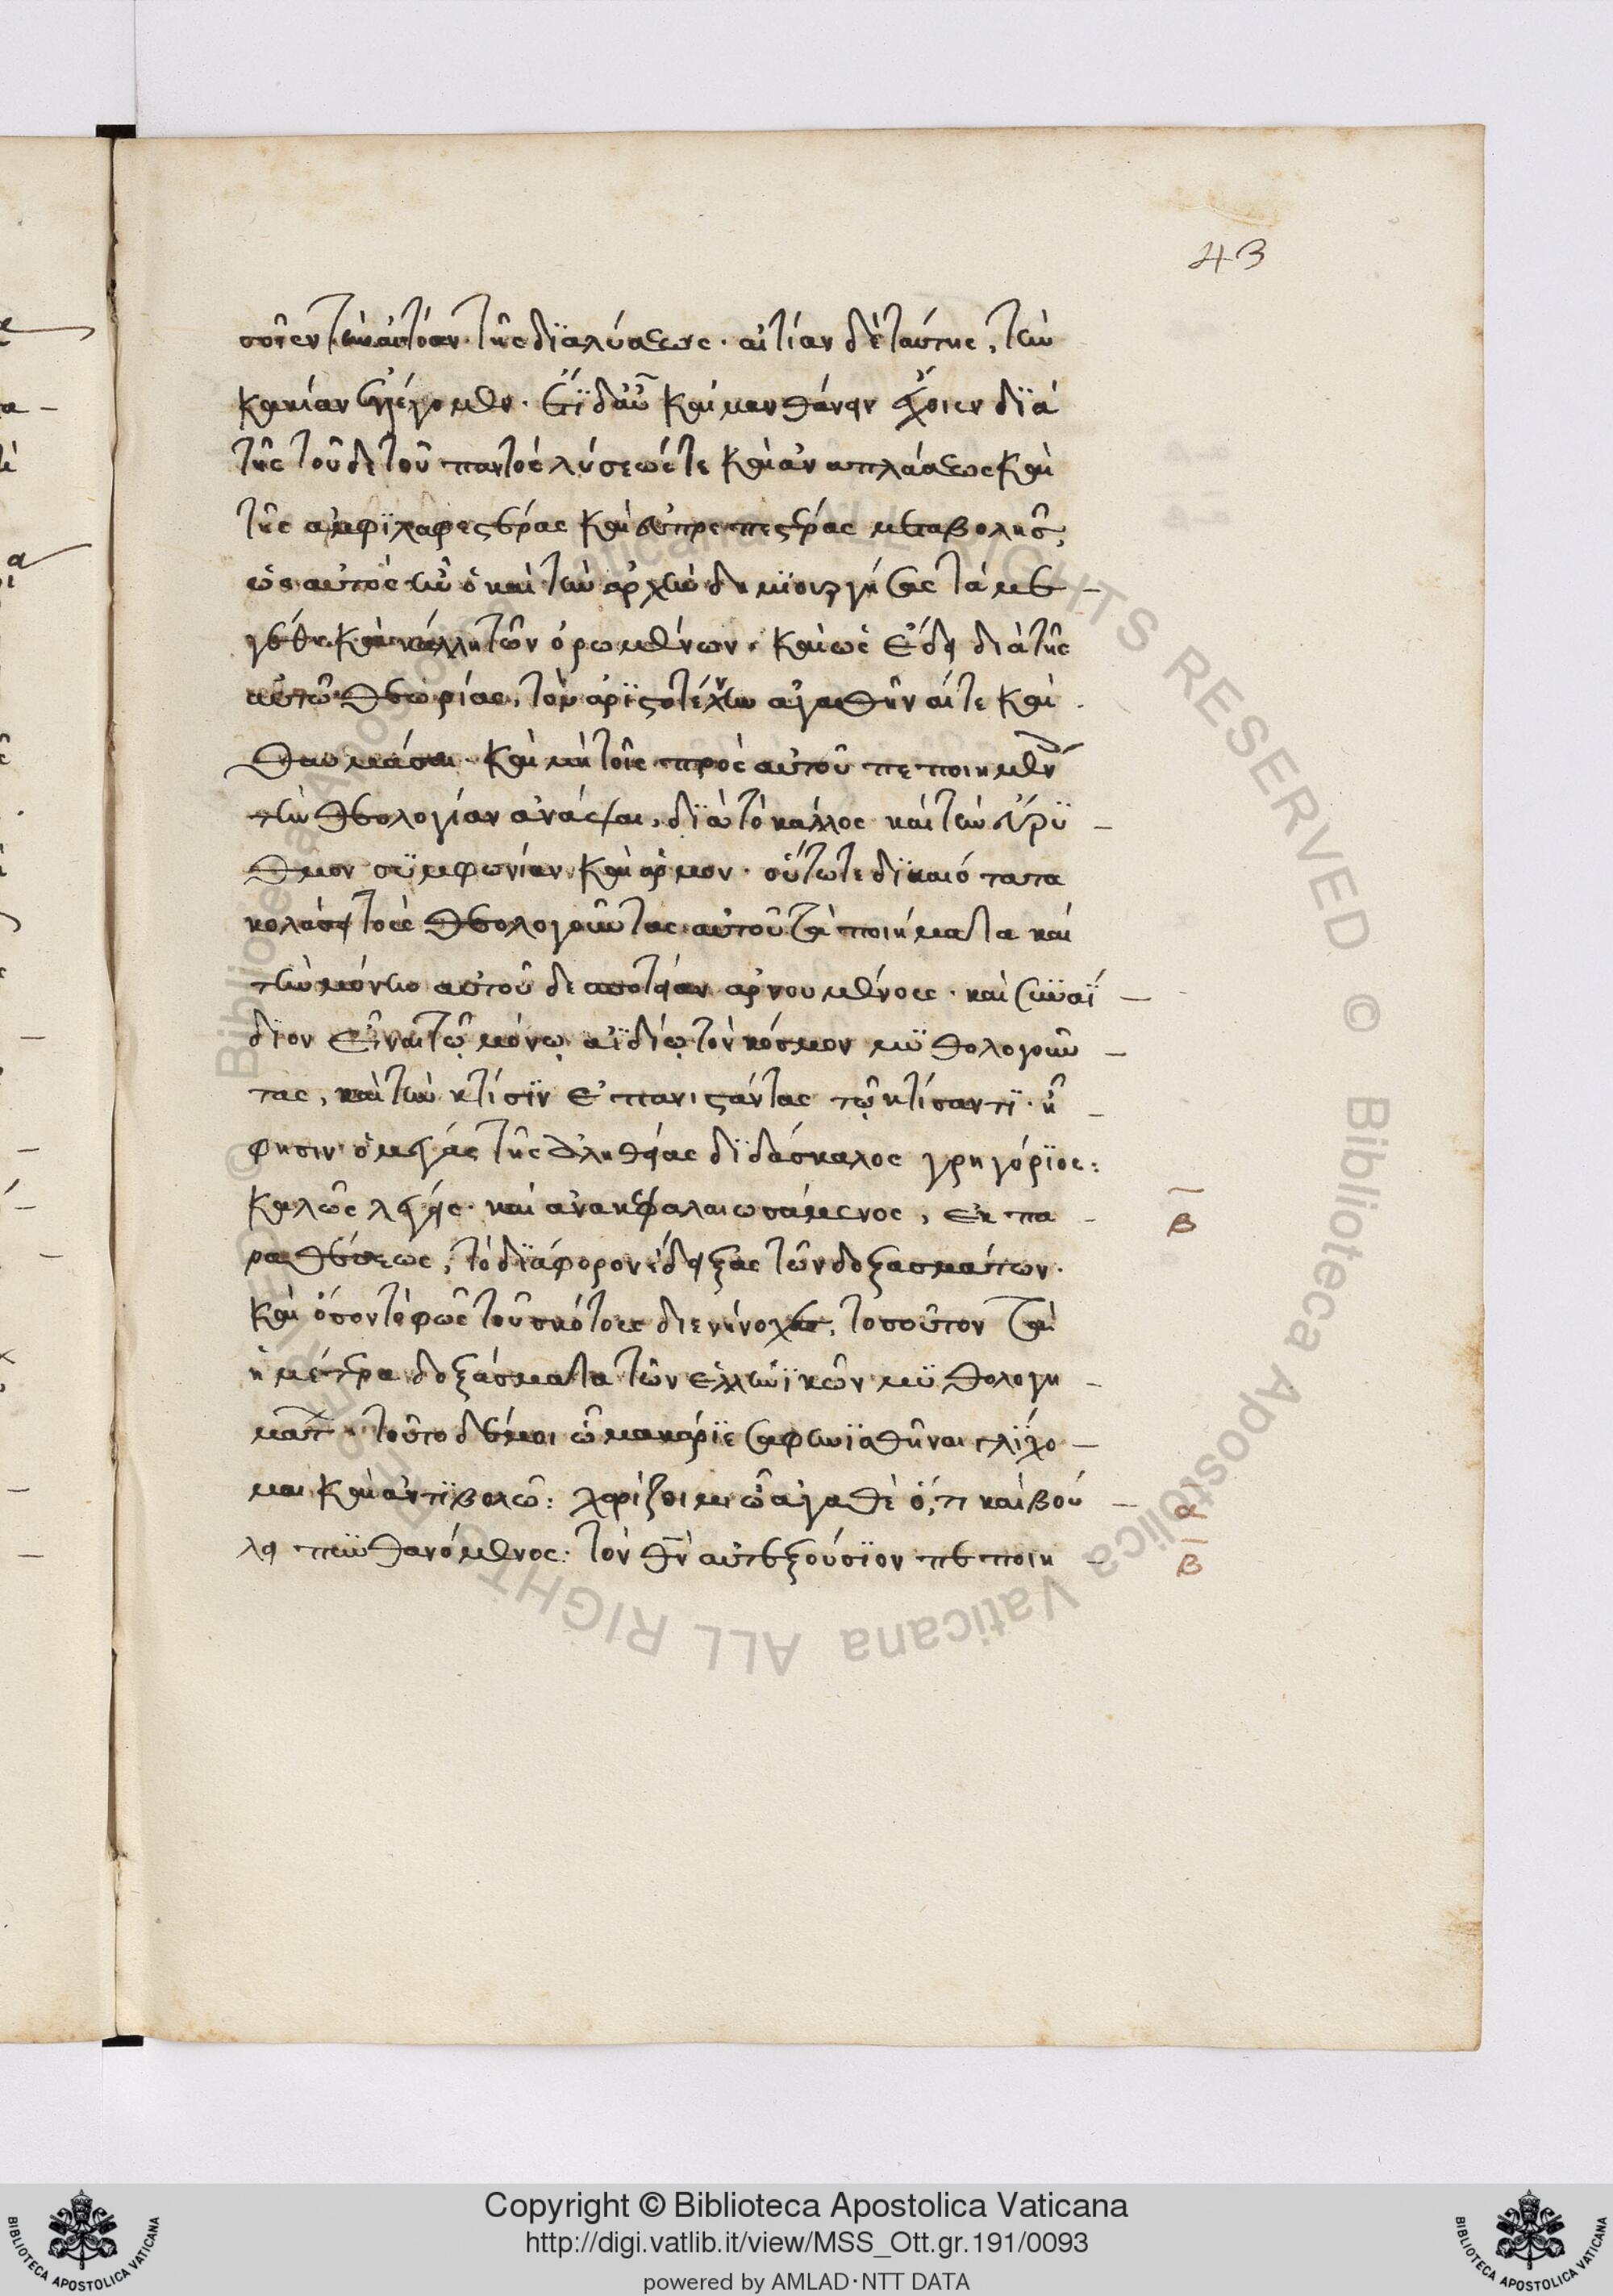 43
τῆς διαλύσεως· αἰτίαν δὲ ταύτης, τὴν
κακίαν καὶ μανθάνειν ἔχοιεν διὰ
τῆς τοῦδε τοῦ παντὸς λύσεώς τε καὶ ἀναπλάσεως καὶ
τῆς ἀμφιλαφεστέρας καὶ εὐπρεπεστέρας μεταβολῆς,
ὡς αὐτὸς ἦν ὁ καὶ τὴν ἀρχὴν δημιουργήσας τὰ με
γέθη καὶ κάλλη τῶν ὁρωμένων· καὶ ὡς ἔδει διὰ τῆς
αὐτῶν θεωρίας, τὸν ἀριστοτέχνην ἀγασθῆναί τε καὶ
θαυμάσαι· καὶ μὴ τοῖς πρὸς αὐτοῦ πεποιημέν
τὴν θεολογίαν ἀνάψαι, διὰ τὸ κάλλος καὶ τὴν εὔρυ
θμον συμφωνίαν καὶ ἁρμον· οὕτω τε δικαιότατα
κολάσει τοὺς θεολογοῦντας αὐτοῦ τὰ ποιήματα καὶ
τὴν μόνην αὐτοῦ δεσποτείαν ἀρνουμένους· καὶ συναΐ
διον εἶναι τῷ μόνῳ ἀϊδίῳ τὸν κόσμον μυθολογοῦν
τας, καὶ τὴν κτίσιν ἐπανιστάντας τῷ κτίσαντι· ᾗ
φησιν ὁ μέγας τῆς ἀληθείας διδάσκαλος γρηγόριος:
καλῶς λέγεις· καὶ ἀνακεφαλαιωσάμενος, ἐκ πα
β
ραθέσεως, τὸ διάφορον ἔδειξας τῶν δοξασμάτων·
καὶ ὅσον τὸ φῶς τοῦ σκότους διενήνοχε, τοσοῦτον τὰ
ἡμέτερα δοξάσματα τῶν ἑλληνικῶν μυθολογη
μάτ· τοῦτο δέ μοι ὦ μακάριε σαφηνισθῆναι γλίχο
μαι καὶ ἀντιβολῶ: χαρίζοιμι ὦ ἀγαθὲ ὅ,τι καὶ βού
α
λει πυνθανόμενος· τὸν αὐτεξούσιον πεποιη
β
Copyright © Biblioteca Apostolica Vaticana
http://digi.vatlib.it/view/MSS_Ott.gr.191/0093
powered by AMLAD·NTT DATA
BIBLIOTECA APOSTOLICA VATICANA
BIBLIOTECA APOSTOLICA VATICANA
© Biblioteca Apostolica Vaticana ALL RIGHTS RESERVED © Biblioteca Apostolica Vaticana ALL RIGHTS RESERVED